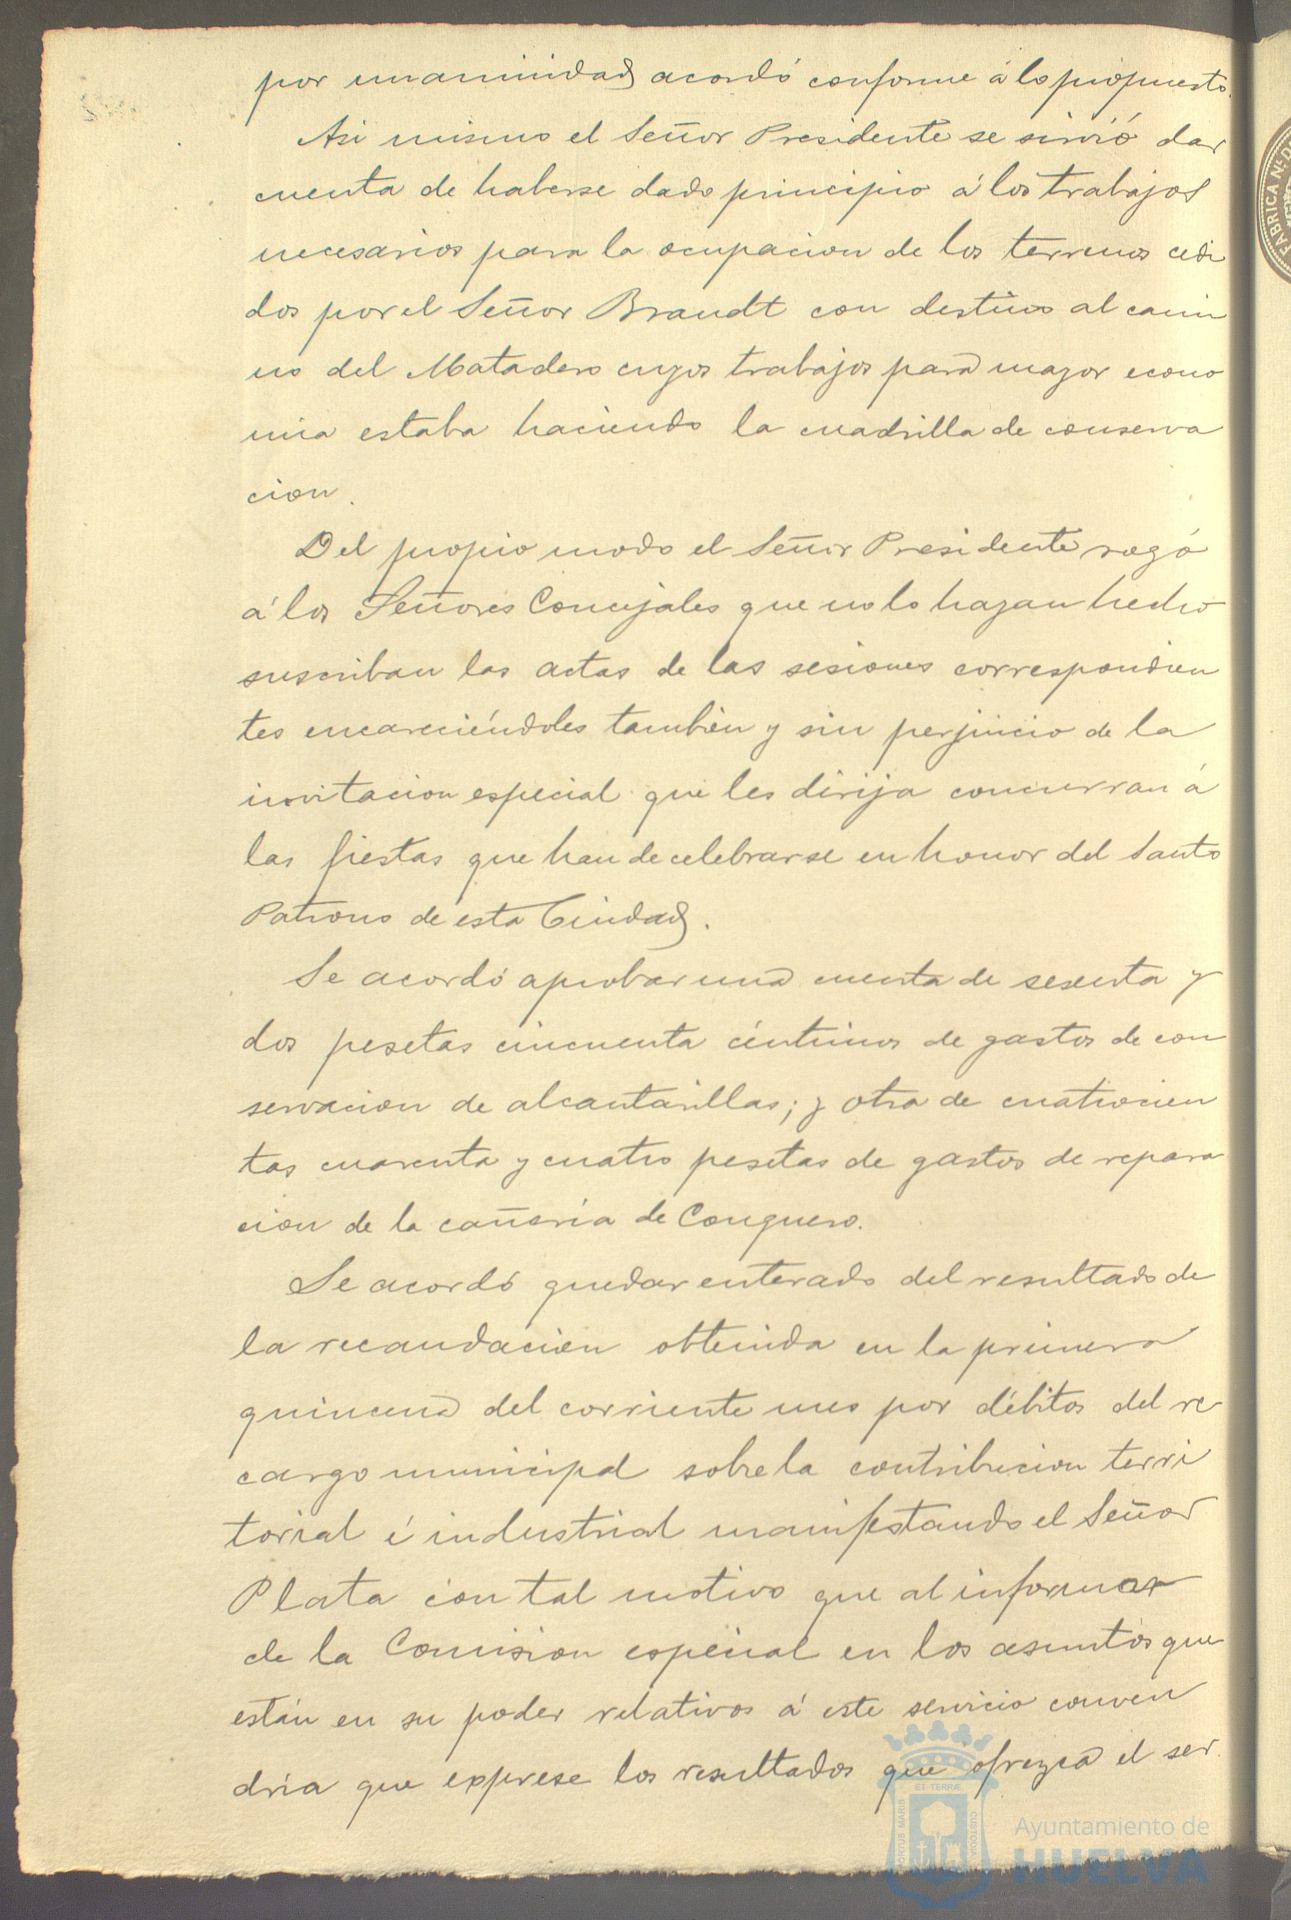 por unanimidad acordó conforme á lo propuesto.
Asi mismo el Señor Presidente se sirvió dar
cuenta de haberse dado principio á los trabajos
necesarios para la ocupacion de los terrenos cedi
dos por el Señor Brandt con destino al cami
no del Matadero cuyos trabajos para mayor econo
mia estaba haciendo la cuadrilla de conserva
cion.
Del propio modo el Señor Presidente rogó
á los Señores Concejales que no lo hayan hecho
suscriban las actas de las sesiones correspondien
tes encareciéndoles tambien y sin perjuicio de la
invitacion especial que les dirija concurran á
las fiestas que han de celebrarse en honor del Santo
Patrono de esta Ciudad.
Se acordó aprobar una cuenta de sesenta y
dos pesetas cincuenta céntimos de gastos de con
servacion de alcantarillas; y otra de cuatrocien
tas cuarenta y cuatro pesetas de gastos de repara
cion de la cañeria de Conquero.
Se acordó quedar enterado del resultado de
la recaudacion obtenida en la primera
quincena del corriente mes por débitos del re
cargo municipal sobre la contribucion terri
torial é industrial manifestando el Señor
Plata con tal motivo que al informar
de la Comision especial en los asuntos que
están en su poder relativos á este servicio conven
dria que exprese los resultados que ofrezca el ser
FABRICA NL. D
PORTUS MARIS
ET TERRÆ
CUSTODIA
Ayuntamiento de
HUELVA